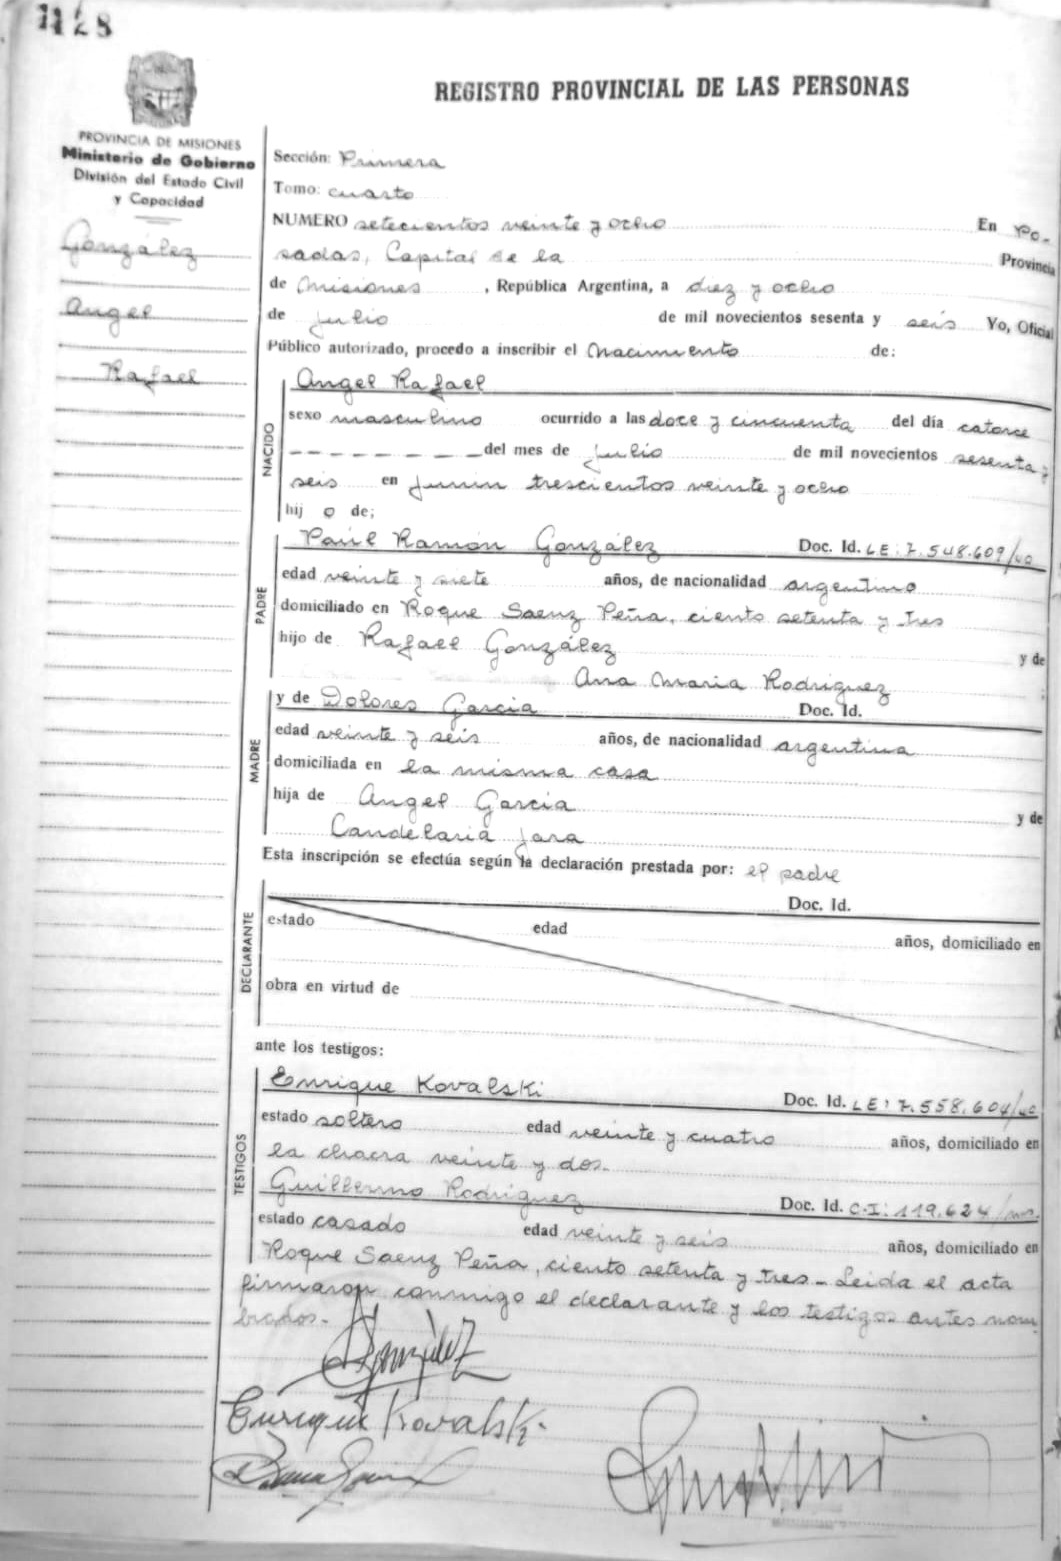 1128
REGISTRO PROVINCIAL DE LAS PERSONAS
PROVINCIA DE MISIONES
Ministerio de Gobierno
División del Estado Civil
y Capacidad
González
Angel
Rafael
Sección: Primera
Tomo: cuarto
NUMERO setecientos veinte y ocho En Po-
sadas, Capital de la Provincia
de Misiones, República Argentina, a diez y ocho
de Julio de mil novecientos sesenta y seis Yo, Oficial
Público autorizado, procedo a inscribir el Nacimiento de:
NACIDO
Angel Rafael
sexo masculino ocurrido a las doce y cincuenta del día catorce
- - - - - - - - del mes de Julio de mil novecientos sesenta y
seis en Junin trescientos veinte y ocho
hij o de;
PADRE
Raúl Ramón González Doc. Id. LE: 7.548.609/
edad veinte y siete años, de nacionalidad argentino
domiciliado en Roque Saenz Peña, ciento setenta y tres
hijo de Rafael González y de
Ana Maria Rodriguez
MADRE
y de Dolores Garcia Doc. Id.
edad veinte y seis años, de nacionalidad argentina
domiciliada en la misma casa
hija de Angel Garcia y de
Candelaria Jara
Esta inscripción se efectúa según la declaración prestada por: el padre
DECLARANTE
Doc. Id.
estado edad años, domiciliado en
obra en virtud de
ante los testigos:
TESTIGOS
Enrique Kovalski Doc. Id. LE: 7.558.604/
estado soltero edad veinte y cuatro años, domiciliado en
la chacra veinte y dos.
Guillermo Rodriguez Doc. Id. C.I: 119.624/
estado casado edad veinte y seis años, domiciliado en
Roque Saenz Peña, ciento setenta y tres - Leida el acta
firmaron conmigo el declarante y los testigos antes nom
brados.-
González
Enrique Kovalski